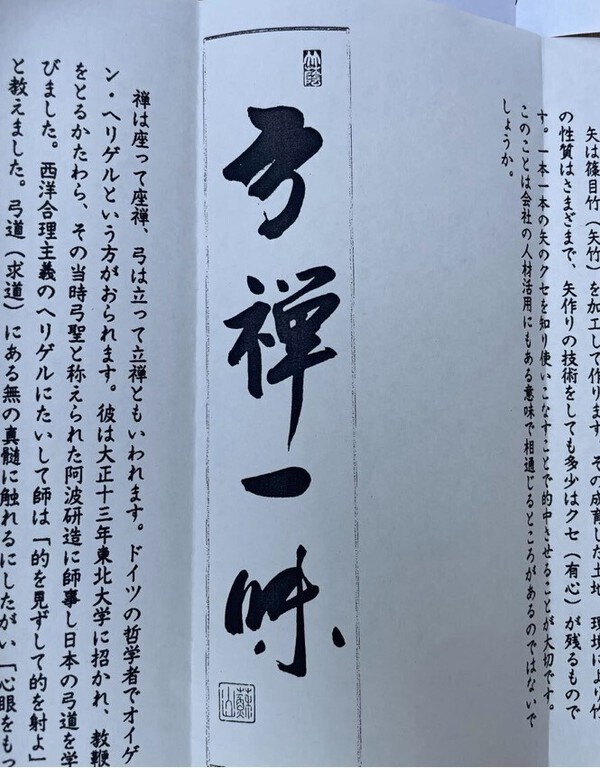 矢は篠目竹（矢竹）を加工して作ります。その成育した土地、環境により竹
の性質はさまざまで、矢作りの技術をしても多少はクセ（有心）が残るもので
す。一本一本の矢のクセを知り使いこなすことで的中させることが大切です。
このことは会社の人材活用にもある意味で相通じるところがあるのではないで
しょうか。
弓禅一味
禅は座って座禅、弓は立って立禅ともいわれます。ドイツの哲学者でオイゲ
ン・ヘリゲルという方がおられます。彼は大正十三年東北大学に招かれ、教鞭
をとるかたわら、その当時弓聖と称えられた阿波研造に師事し日本の弓道を学
びました。西洋合理主義のヘリゲルにたいして師は「的を見ずして的を射よ」
と教えました。弓道（求道）にある無の真髄に触れるにしたがい「心眼をもっ